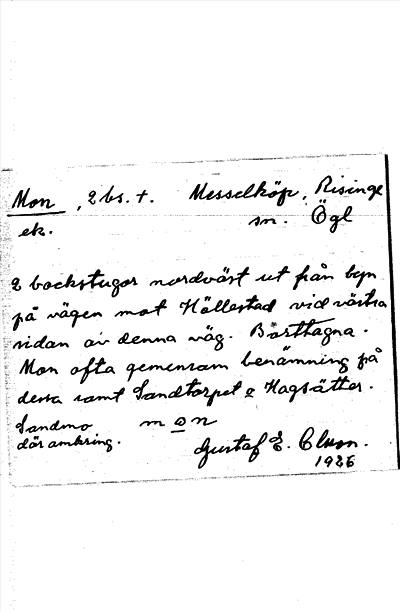 Mon, 2 bs. †. Messelköp, Risinge
ek. sn. Ögl
2 backstugor nordväst ut från byn
på vägen mot Hällestad vid västra
sidan av denna väg. Borttagna.
Mon ofta gemensam benämning på
dessa samt Sandtorpet o Hagsätter.
Sandmo m o n
där omkring.
Gustaf E. Olsson.
1926